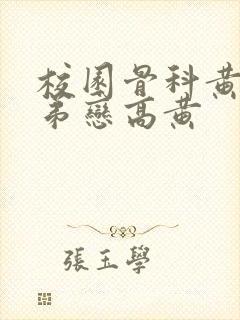 校園骨科黃
弟戀高黃
張玉學